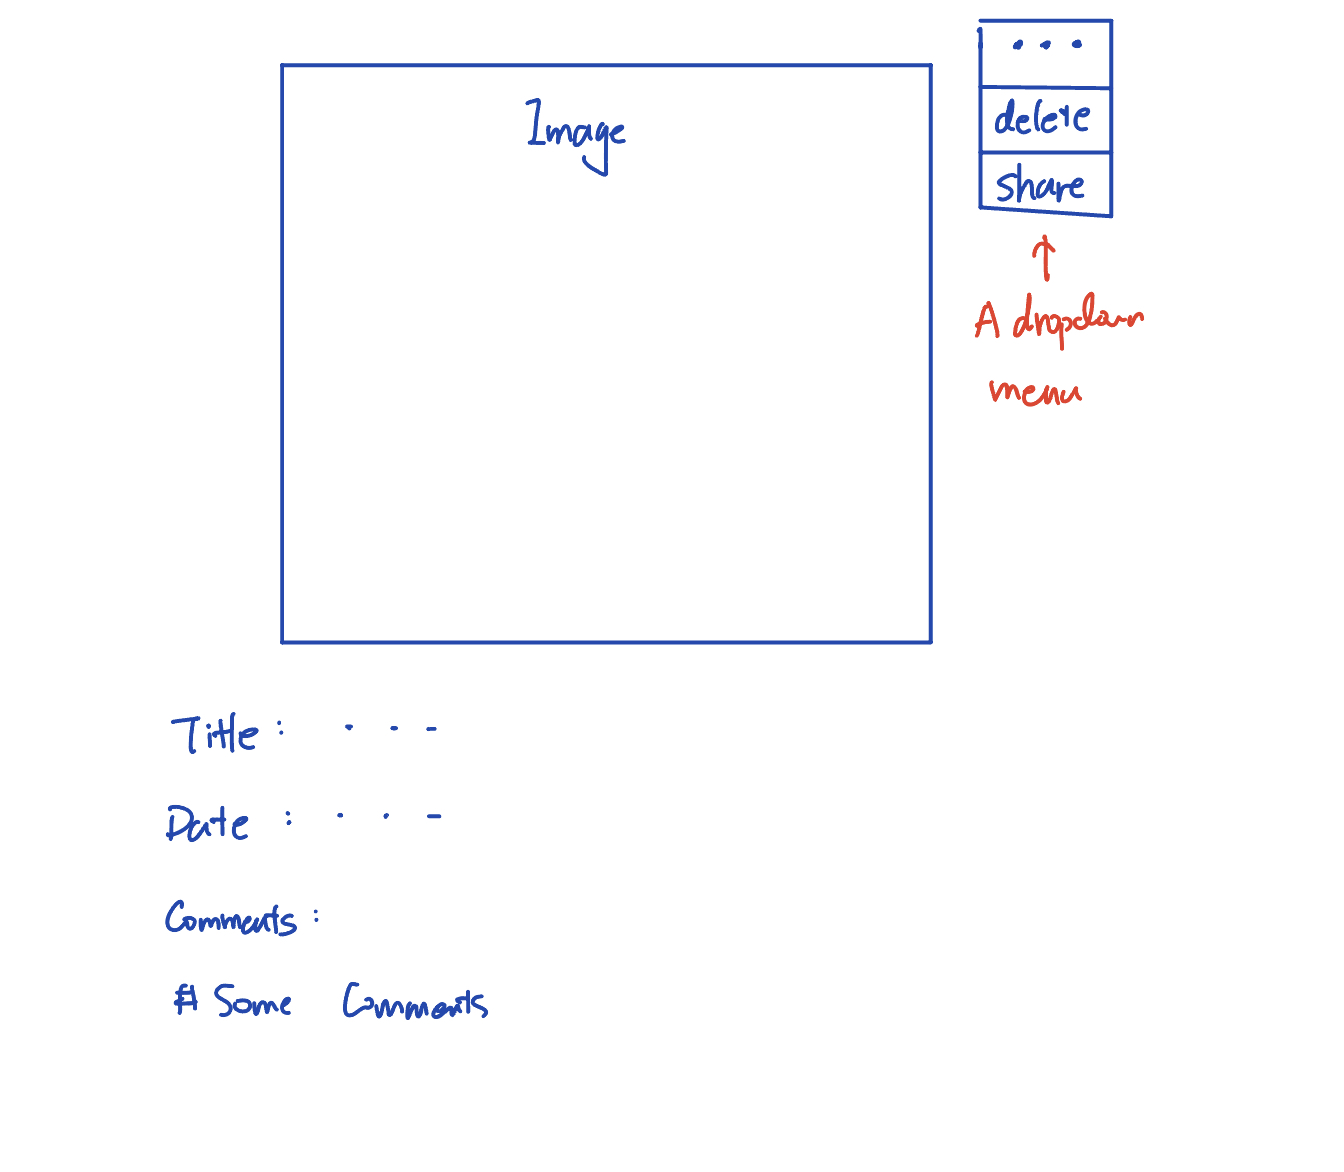 ...
Image
delete
share
A dropdown
menu
Title : ...
Date : ...
Comments :
# Some Comments